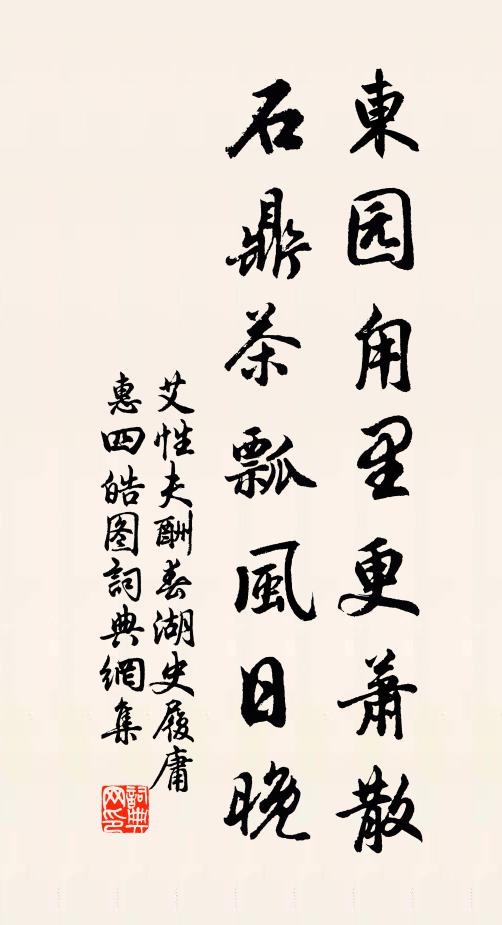 東园甪里更蕭散
石鼎茶瓢風日晚
艾性夫酬春湖史履庸
惠四皓图詞典網集
詞典网印